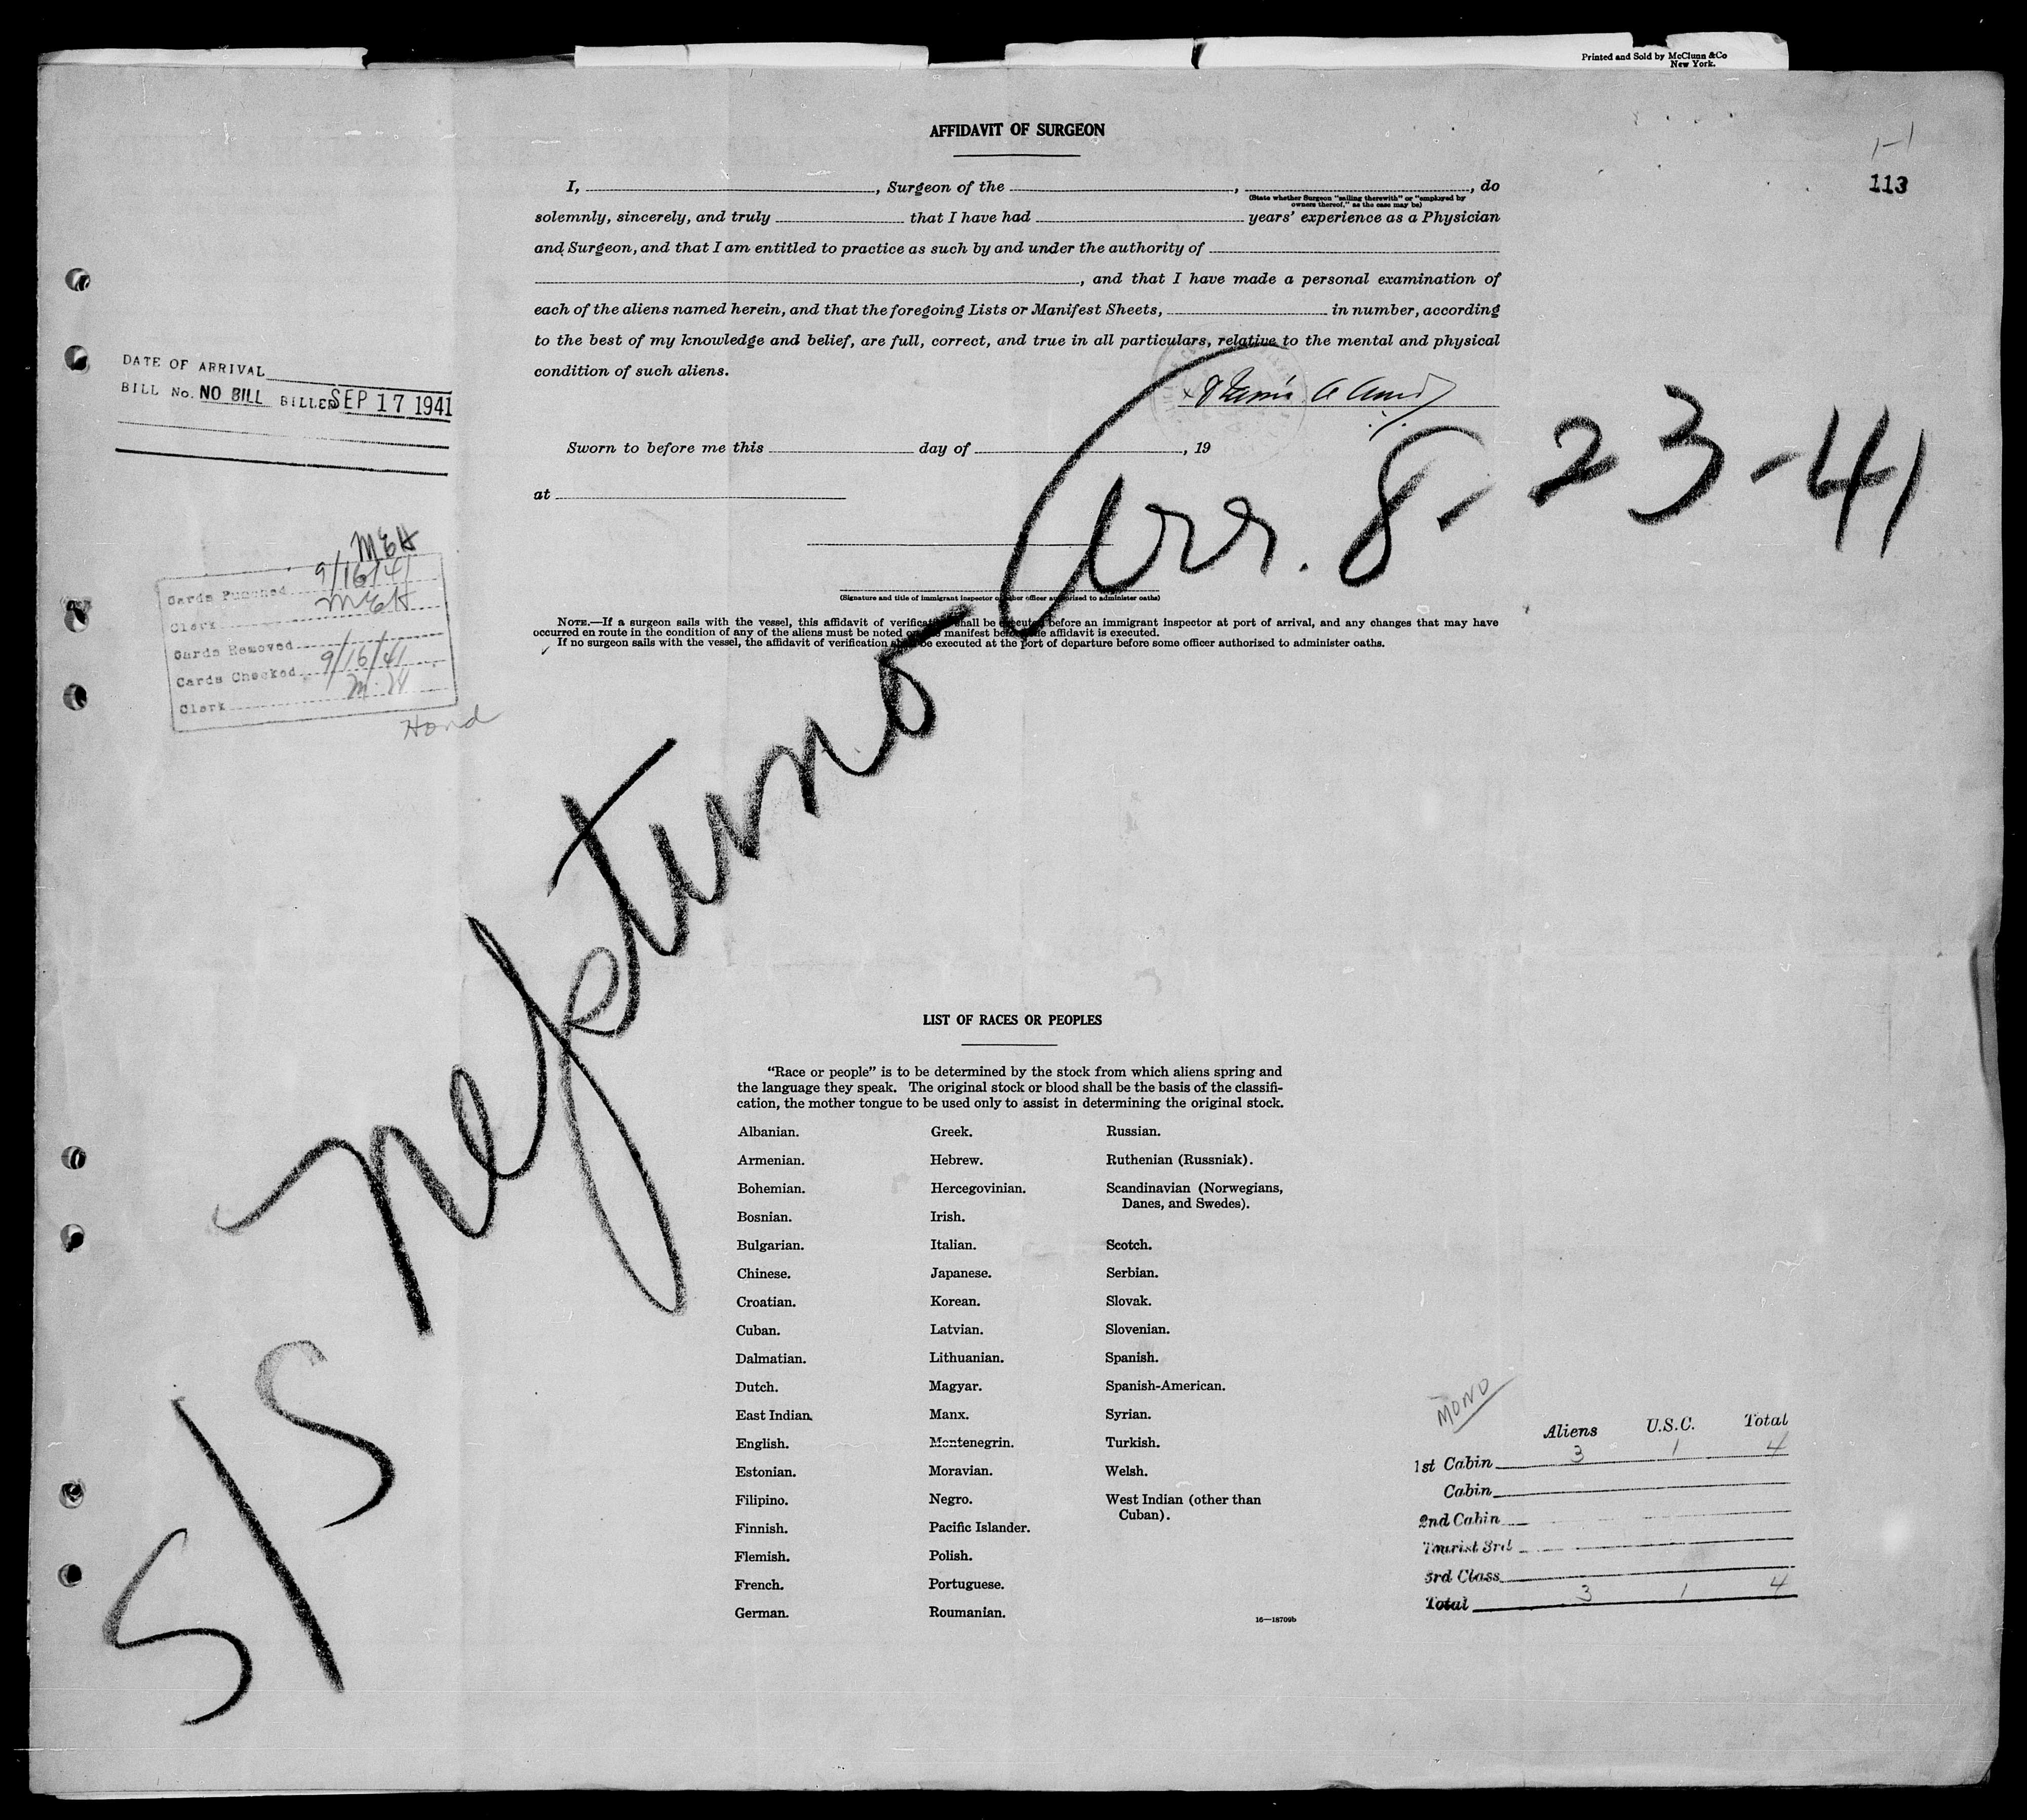 Printed and Sold by McClunn & Co
New York.
AFFIDAVIT OF SURGEON
1-1
113
I, , Surgeon of the , , do
(State whether Surgeon "sailing therewith" or "employed by
owners thereof," as the case may be)
solemnly, sincerely, and truly that I have had years' experience as a Physician
and Surgeon, and that I am entitled to practice as such by and under the authority of
, and that I have made a personal examination of
each of the aliens named herein, and that the foregoing Lists or Manifest Sheets, in number, according
to the best of my knowledge and belief, are full, correct, and true in all particulars, relative to the mental and physical
condition of such aliens.
DATE OF ARRIVAL
BILL No. NO BILL BILLED SEP 17 1941
Sworn to before me this day of , 19
at
Arr. 8-23-41
(Signature and title of immigrant inspector or other officer authorized to administer oaths)
NOTE.—If a surgeon sails with the vessel, this affidavit of verification shall be executed before an immigrant inspector at port of arrival, and any changes that may have
occurred en route in the condition of any of the aliens must be noted on the manifest before the affidavit is executed.
If no surgeon sails with the vessel, the affidavit of verification shall be executed at the port of departure before some officer authorized to administer oaths.
MEH
Cards Punched 9/16/41
Clerk MEH
Cards Removed
Cards Checked 9/16/41
Clerk M. H
Hond
S/S Neptuno
LIST OF RACES OR PEOPLES
"Race or people" is to be determined by the stock from which aliens spring and
the language they speak. The original stock or blood shall be the basis of the classifi-
cation, the mother tongue to be used only to assist in determining the original stock.
Albanian.
Armenian.
Bohemian.
Bosnian.
Bulgarian.
Chinese.
Croatian.
Cuban.
Dalmatian.
Dutch.
East Indian.
English.
Estonian.
Filipino.
Finnish.
Flemish.
French.
German.
Greek.
Hebrew.
Hercegovinian.
Irish.
Italian.
Japanese.
Korean.
Latvian.
Lithuanian.
Magyar.
Manx.
Montenegrin.
Moravian.
Negro.
Pacific Islander.
Polish.
Portuguese.
Roumanian.
Russian.
Ruthenian (Russniak).
Scandinavian (Norwegians,
Danes, and Swedes).
Scotch.
Serbian.
Slovak.
Slovenian.
Spanish.
Spanish-American.
Syrian.
Turkish.
Welsh.
West Indian (other than
Cuban).
16—18709b
MONO
Aliens U.S.C. Total
1st Cabin 3 1 4
Cabin
2nd Cabin
Tourist 3rd
3rd Class
Total 3 1 4